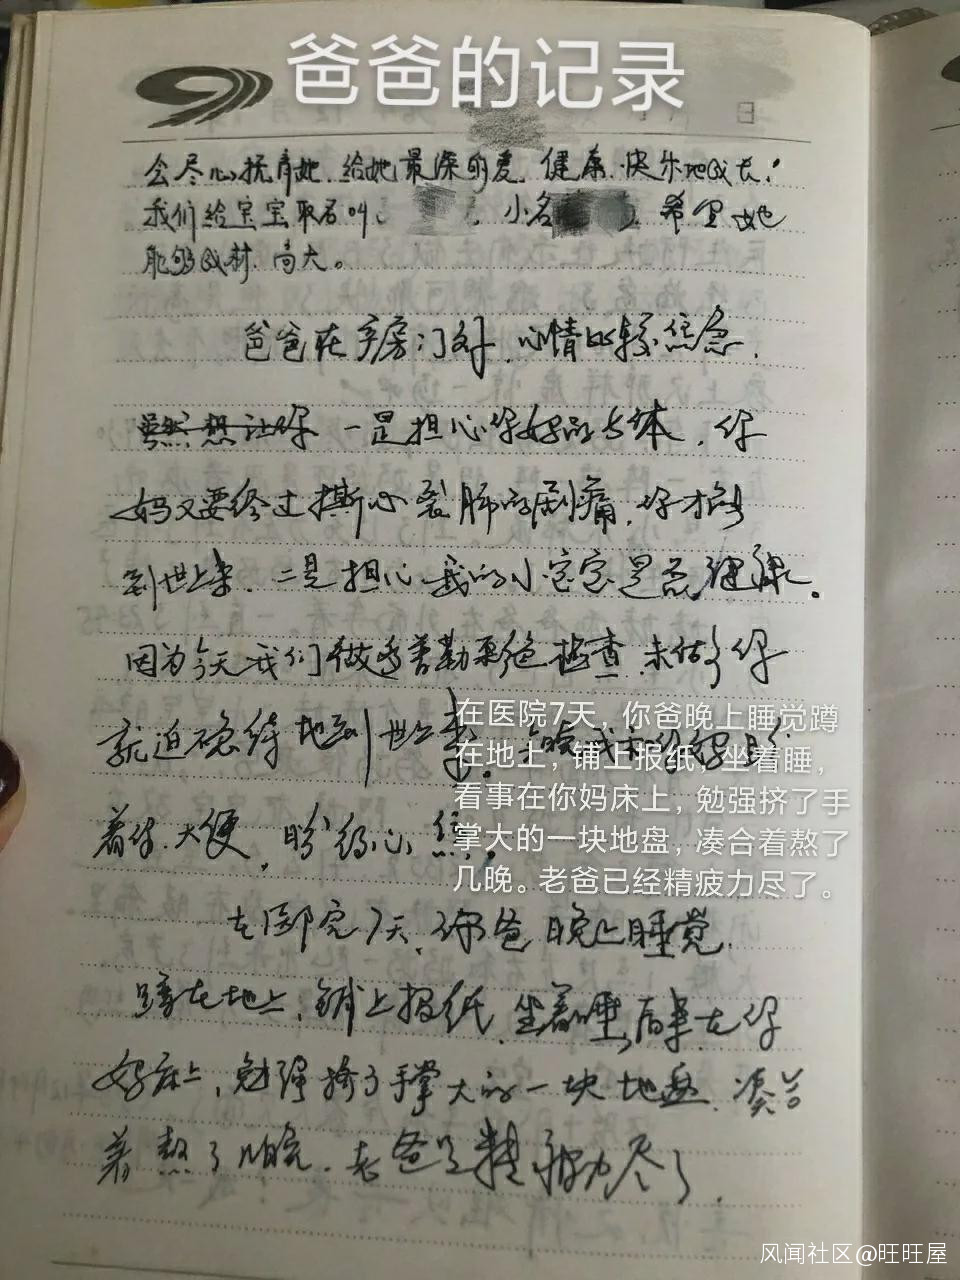 爸爸的记录
会尽心抚育她.给她最深的爱.健康.快乐地成长!
我们给宝宝取名叫、小名 希望她
能够成材.高大。
爸爸在产房门外,心情比较焦急.
虽然想让你 一是担心你妈的身体.你
妈又要经过撕心裂肺的剧痛.你才能
到世上来.二是担心我的小宝宝是否健康.
因为今天我们做多普勒彩色检查.未做了你
就迫不及待地到世上来。
在医院7天,你爸晚上睡觉蹲
在地上,铺上报纸,坐着睡,
看事在你妈床上,勉强挤了手
掌大的一块地盘,凑合着熬了
几晚。老爸已经精疲力尽了。
着你.大便,
在医院7天,你爸晚上睡觉
蹲在地上,铺上报纸.坐着睡,后来在你
妈床上,勉强挤了手掌大的一块地盘.凑合
着熬了几晚.老爸已精疲力尽了.
风闻社区@旺旺屋